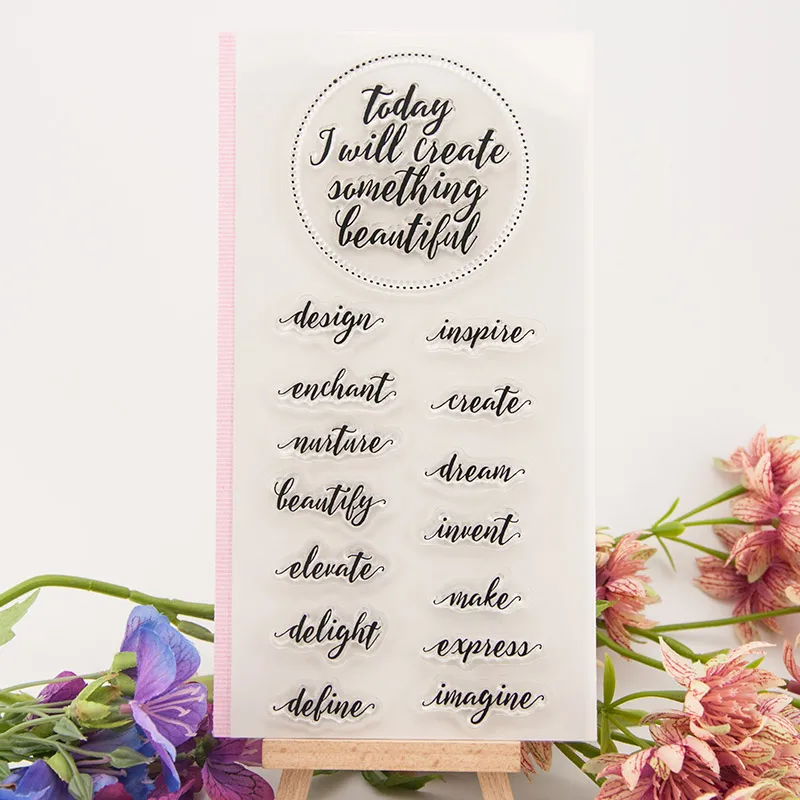 today
I will create
something
beautiful
design
enchant
nurture
beautify
elevate
delight
define
inspire
create
dream
invent
make
express
imagine